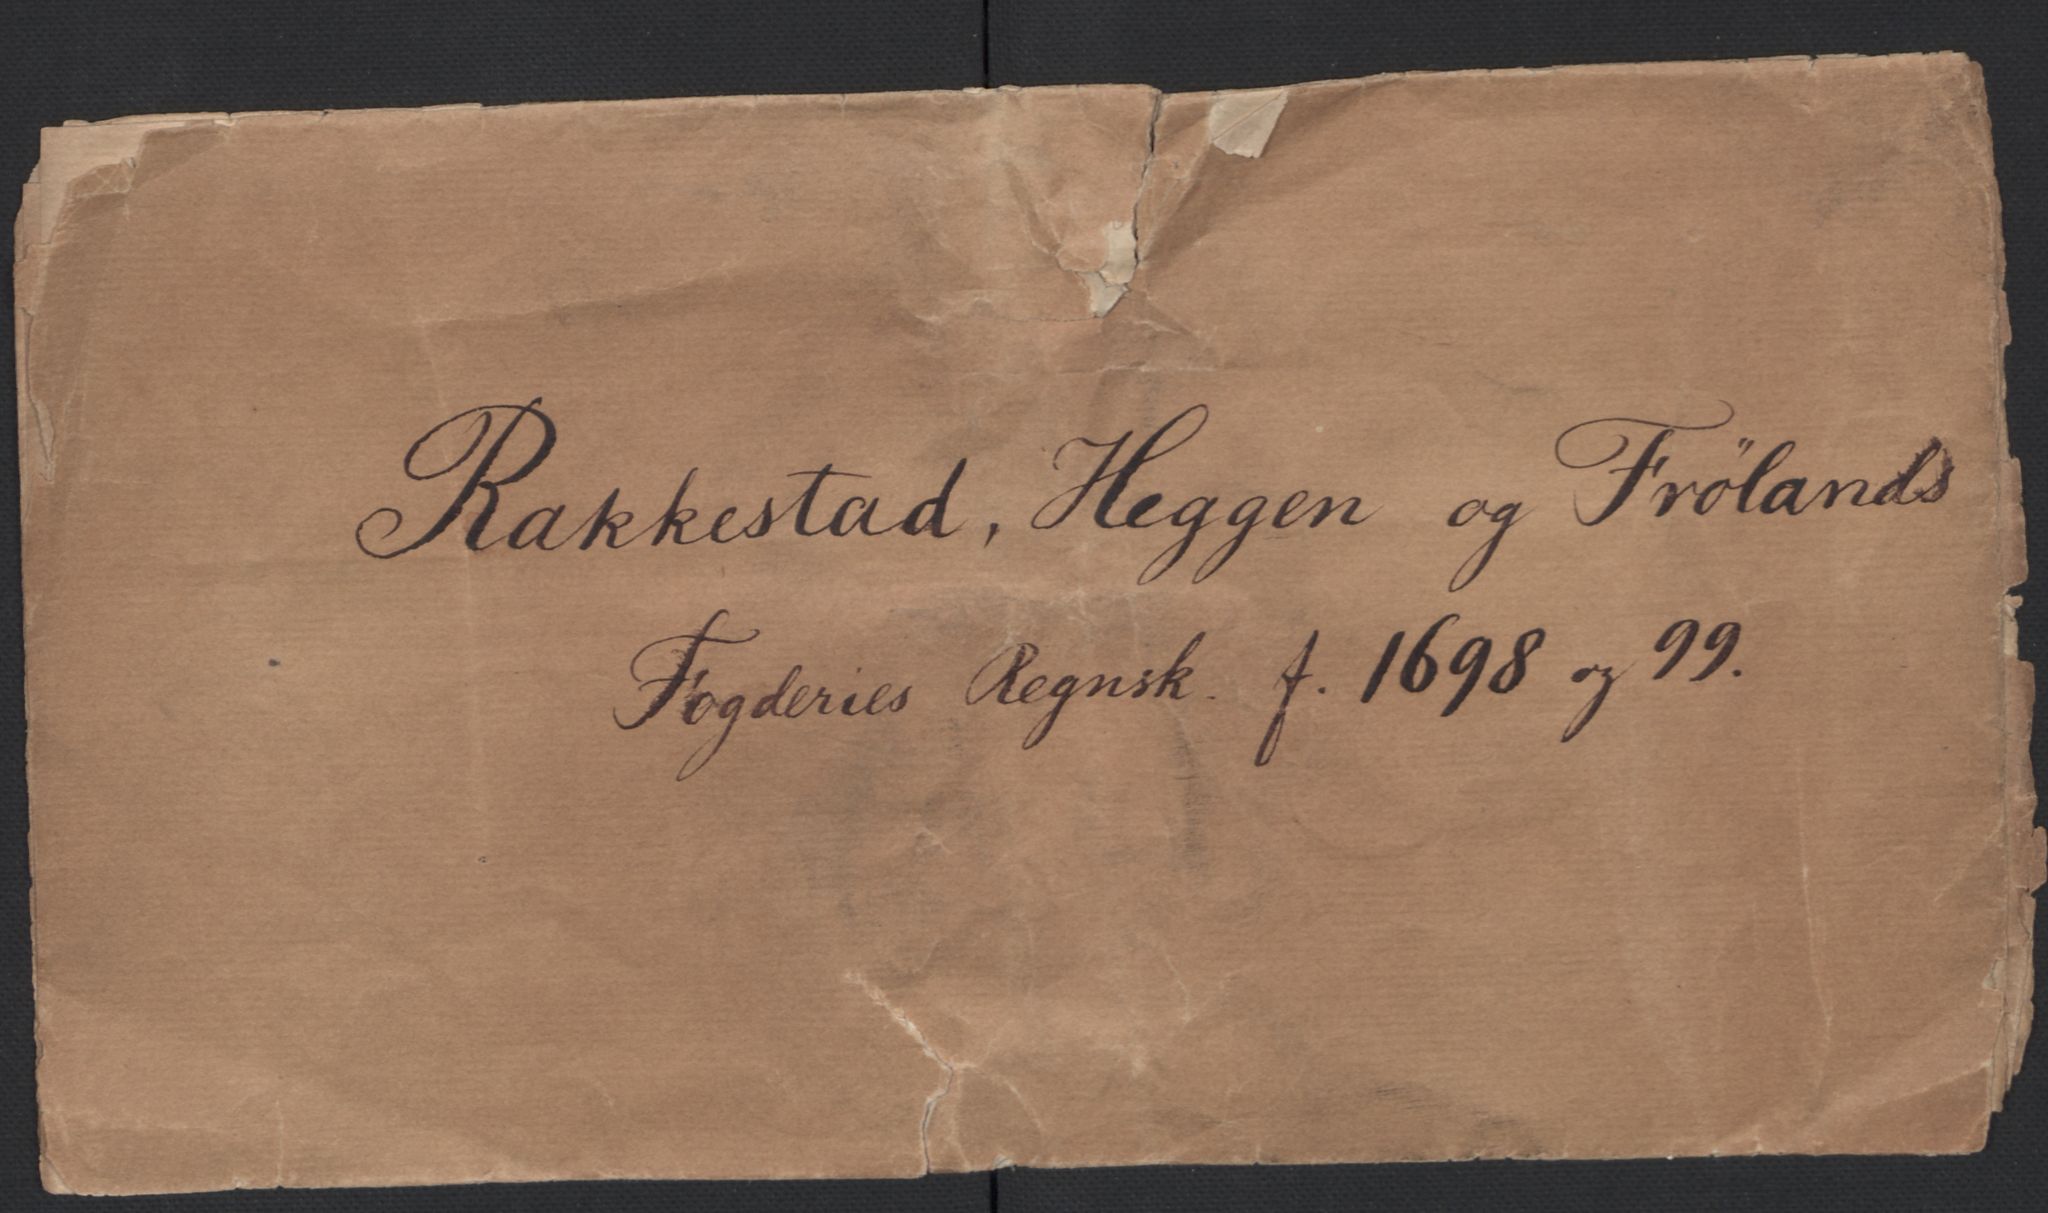 Rakkestad, Heggen og Frölands
Fogderies Regnsk. f. 1698 og 99.